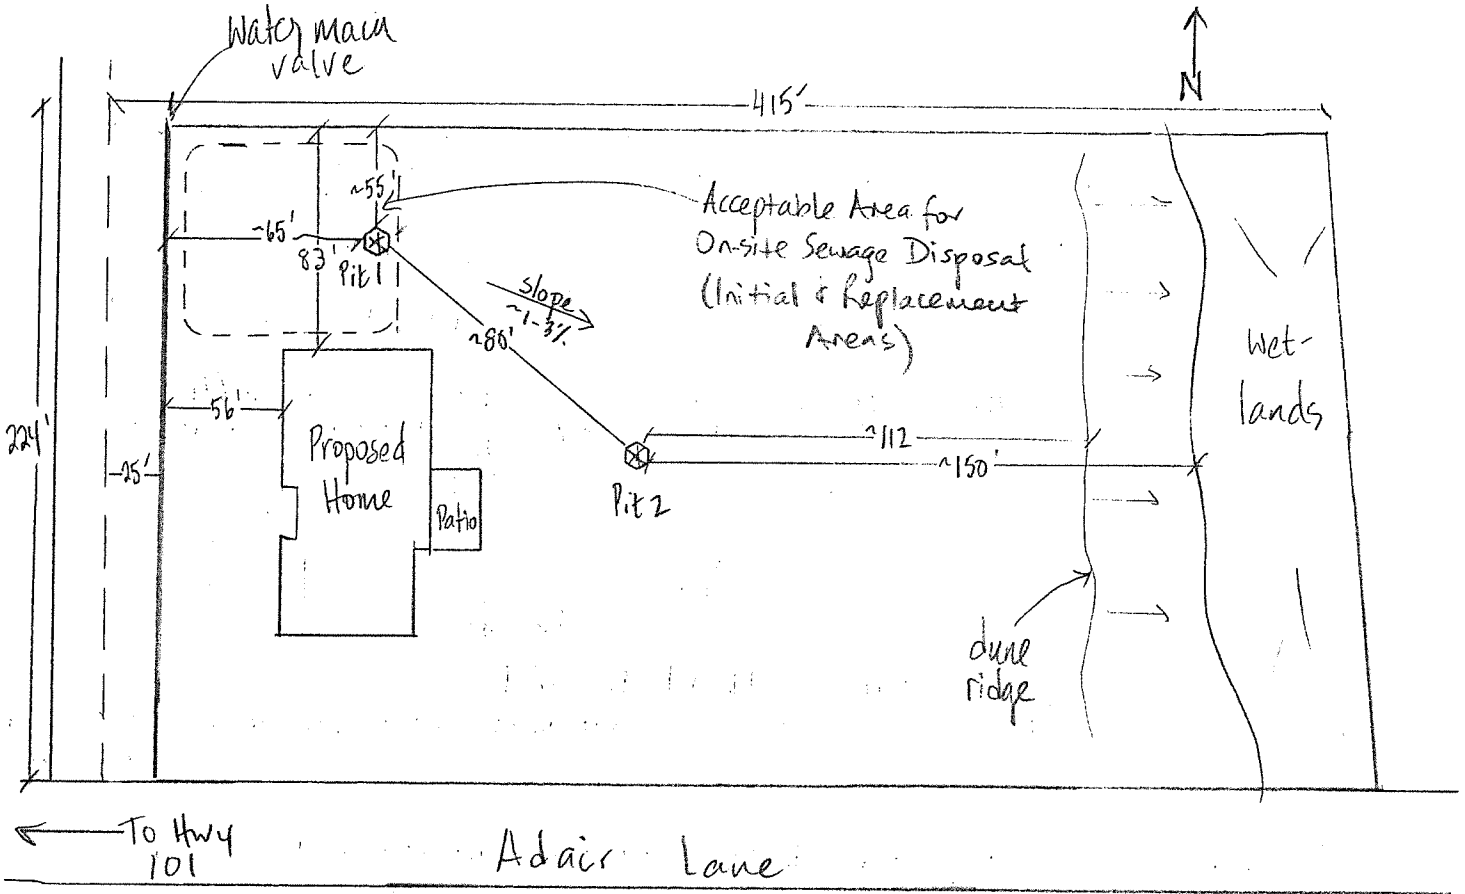 Water main
valve
N
415'
~55'
~65'
83'
Pit 1
Acceptable Area for
On-site Sewage Disposal
(Initial & Replacement
Areas)
slope
~1-3%
~80'
Wet-
lands
56'
224'
25'
Proposed
Home
Patio
Pit 2
~112
~150'
dune
ridge
To Hwy
101
Adair Lane